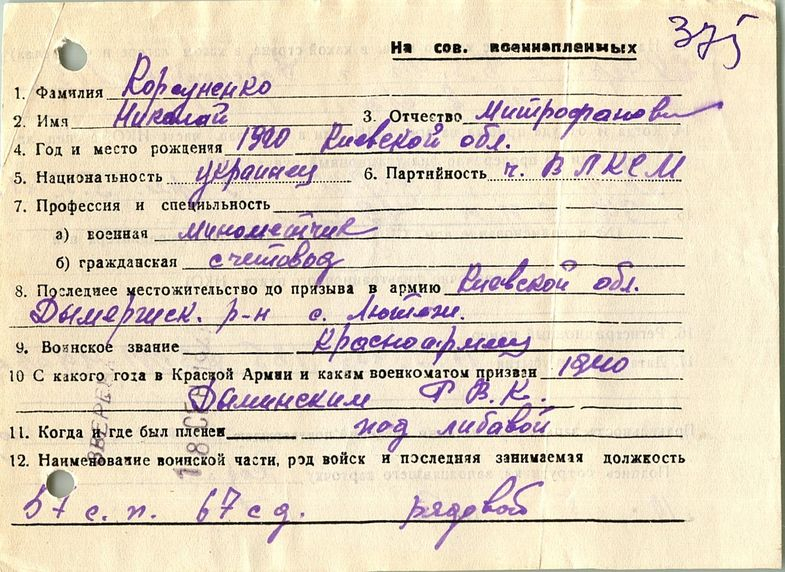 375
На сов. военнапленных
1. Фамилия Корсуненко
2. Имя Николай 3. Отчество Митрофанови
4. Год и место рождения 1920 Киевской обл.
5. Национальность украинец 6. Партийность ч. ВЛКСМ
7. Профессия и специльность
а) военная минометчик
б) гражданская счетовод
8. Последнее местожительство до призыва в армию Киевской обл.
Дымергиск. р-н с. Лютеж.
9. Воинское звание Красноармеец
10 С какого года в Красной Армии и каким военкоматом призван 1940
Дыминским Р.В.К.
11. Когда и где был пленен под либавой
12. Наименование воинской части, род войск и последняя занимаемая должность
57 с. п. 67 с д. рядовой